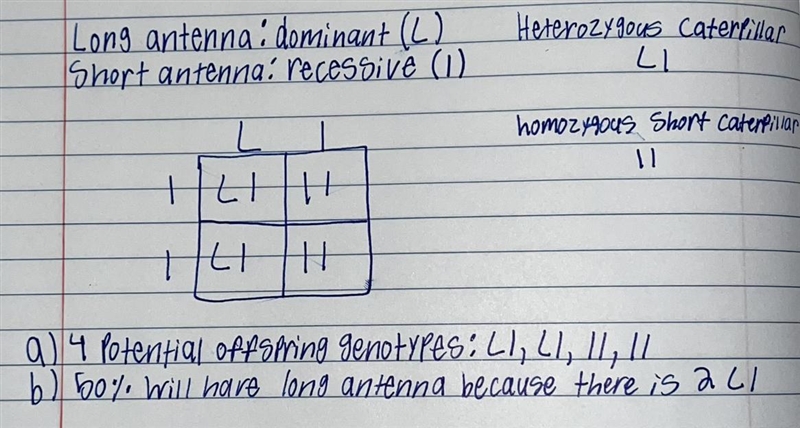 Long antenna: dominant (L)
Short antenna: recessive (l)
Heterozygous Caterpillar
Ll
homozygous Short Caterpillar
ll
L l
l Ll ll
l Ll ll
a) 4 Potential offspring genotypes: Ll, Ll, ll, ll
b) 50% will have long antenna because there is 2 Ll